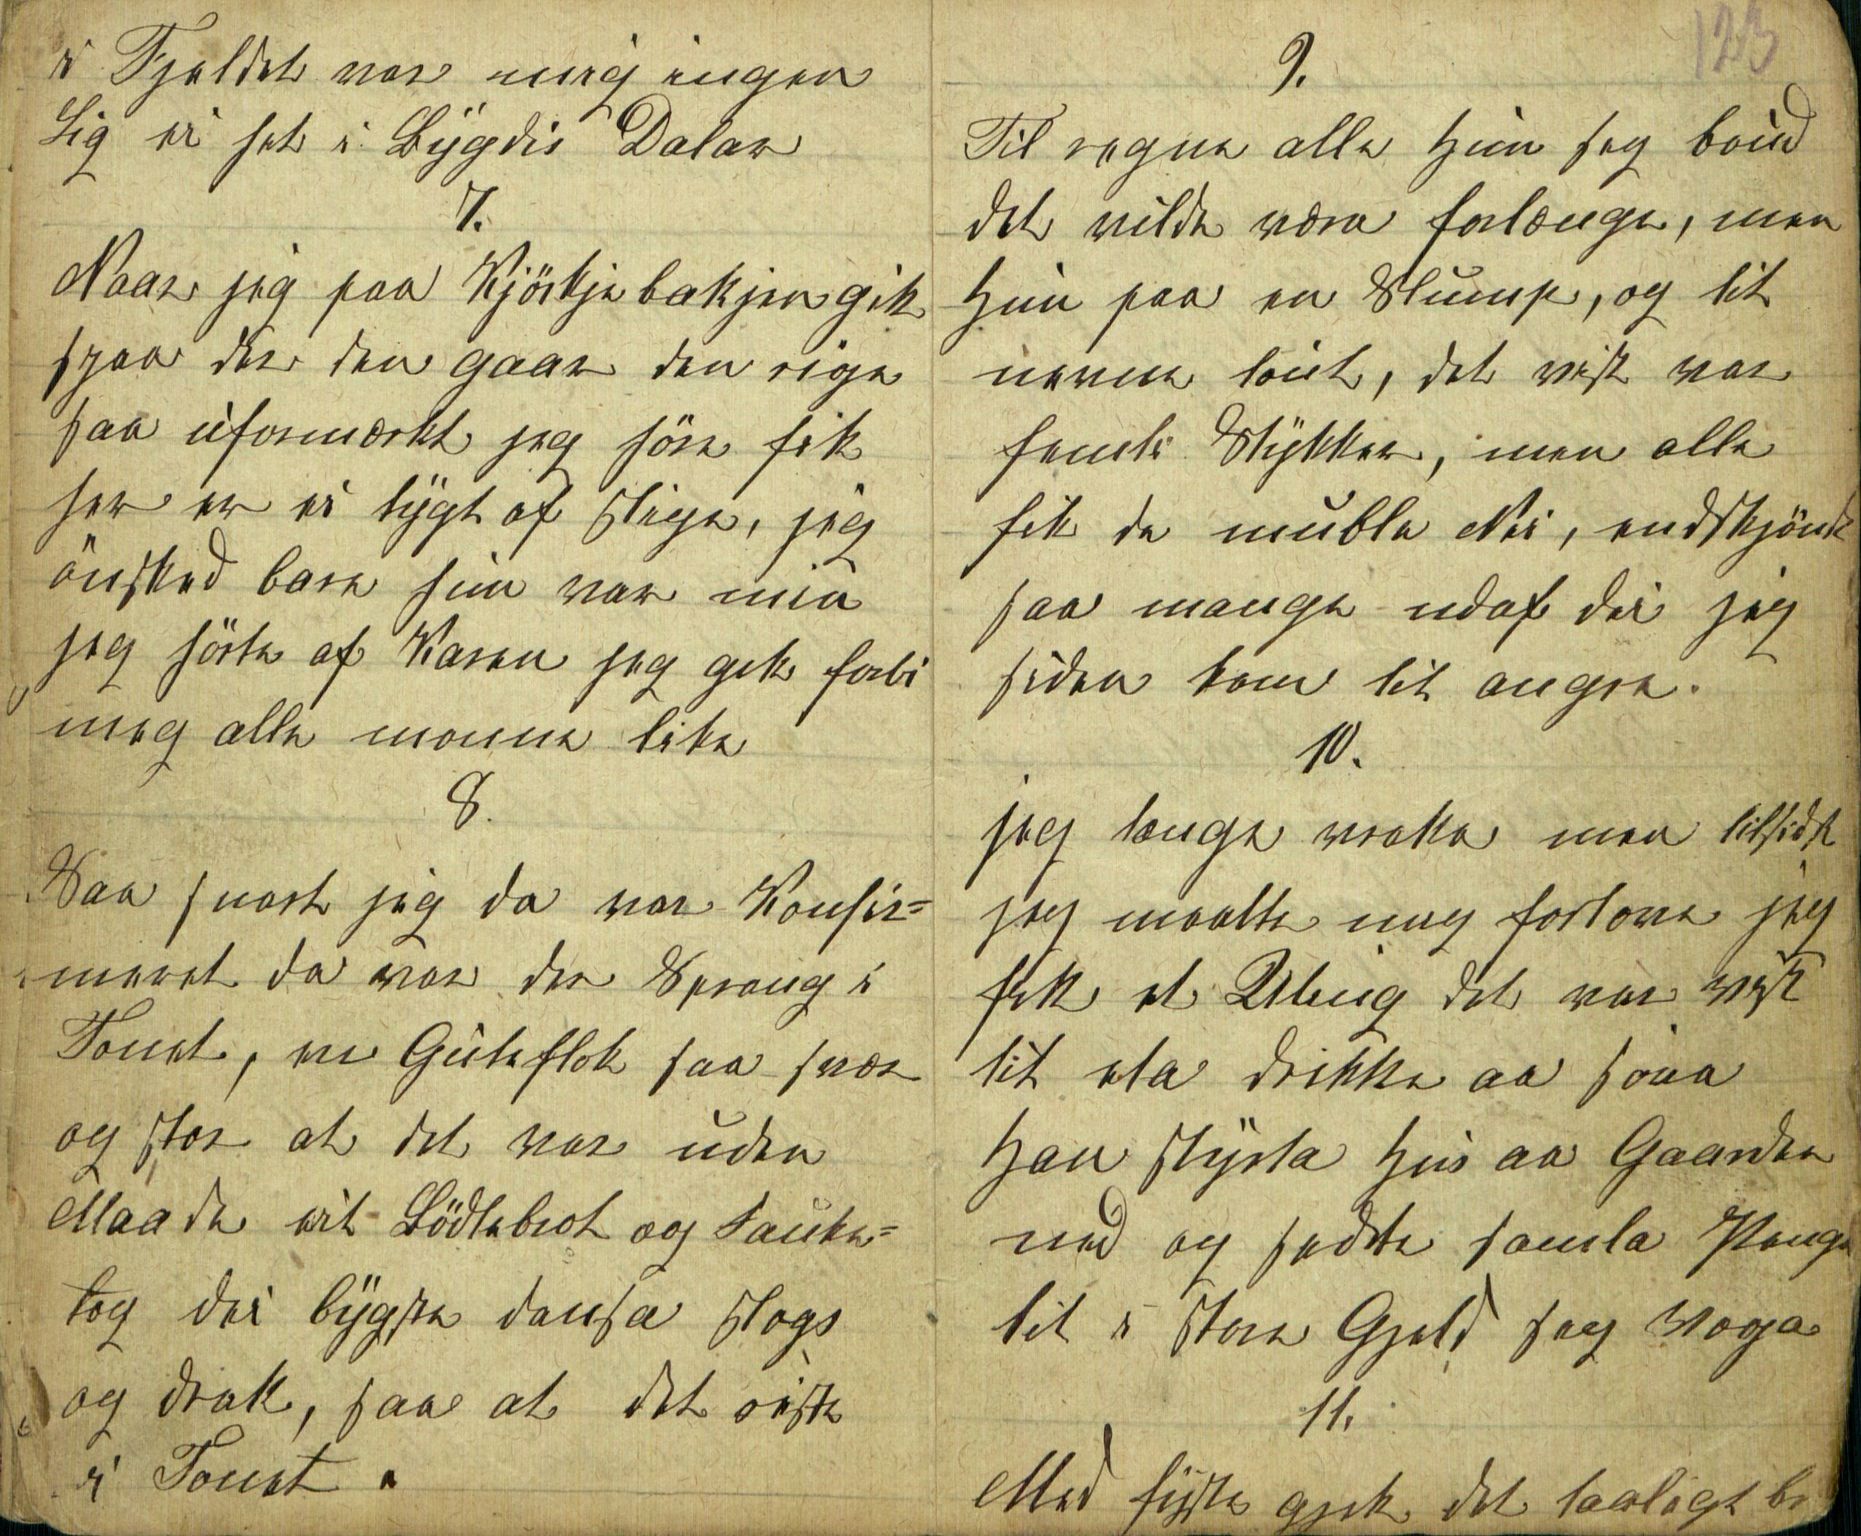 i Fjeldet var mig ingen
Lig ei set i Bygdis Dalar
7.
Naar jeg paa Kjörkjebakjen gik
sjaa der den gaar den rige
saa uformærkt jeg höre fik
her er ei bygt af slige, jeg
önsked bare hun var min
jeg hörte af Karen jeg gik forbi
meg alle monne like
8.
Saa snart jeg da var Konfir=
meret da var der Sprang i
Tonet, en Guteflok saa svær
og stor at det var uden
Maade eit Lödlebrot og Tauke=
tog dei bygste dansa slogs
og drak, saa at det riste
i Tonet.
123
9.
Til regne alle Hun seg baud
det vilde være forlænge, men
Hun paa en Slump, og lit
nevne laut, det vist var
femti Stykker, men alle
fik de muble Nei, endskjöndt
saa mange udaf dei jeg
siden kom lit angre.
10.
jeg længe vraka men tilsidst
jeg maatte meg forlove jeg
fik et Uling det var vist
lit eta drikke aa sova
Han styrta Hus aa Gaarden
ned og hedste samla Penge
lit i store Gjeld seg voga
11.
Med fyste gjek det laaligt